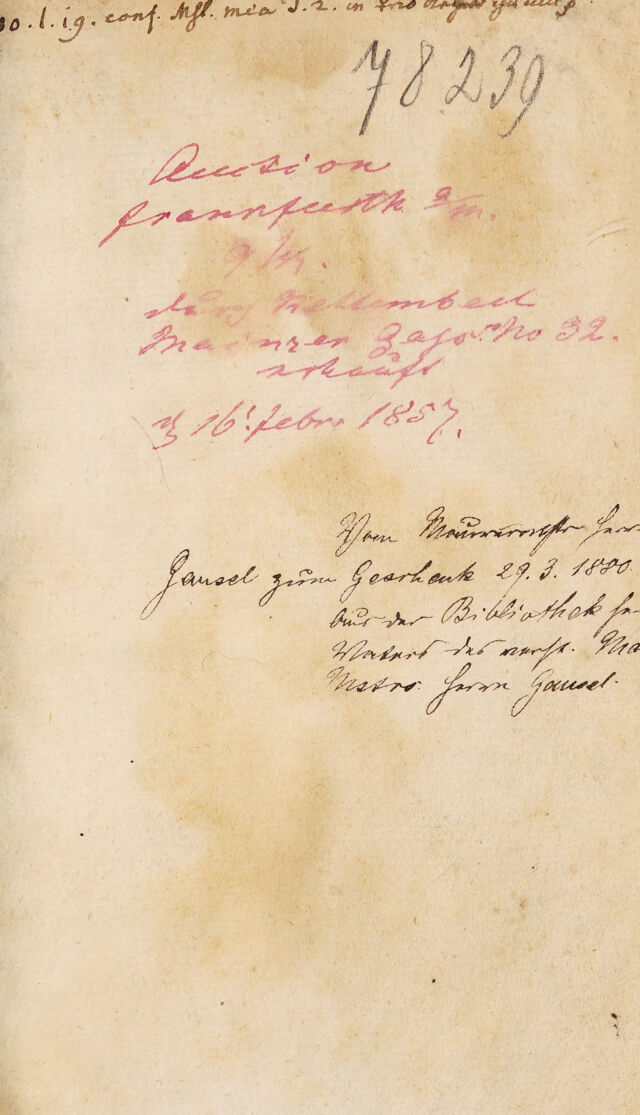 conf. Msl. mea
78239
Auction
Frannfurth a/m.
durch Nettembeck
Mainzer Gass. No 32.
erkauft
d 16t. febr. 1857.
Vom Maurermstr Herr
Gausel zum Geschenk 29. 3. 1880
Aus der Bibliothek
Vaters des verst. Ma
Mstrs. Herrn Gausel.